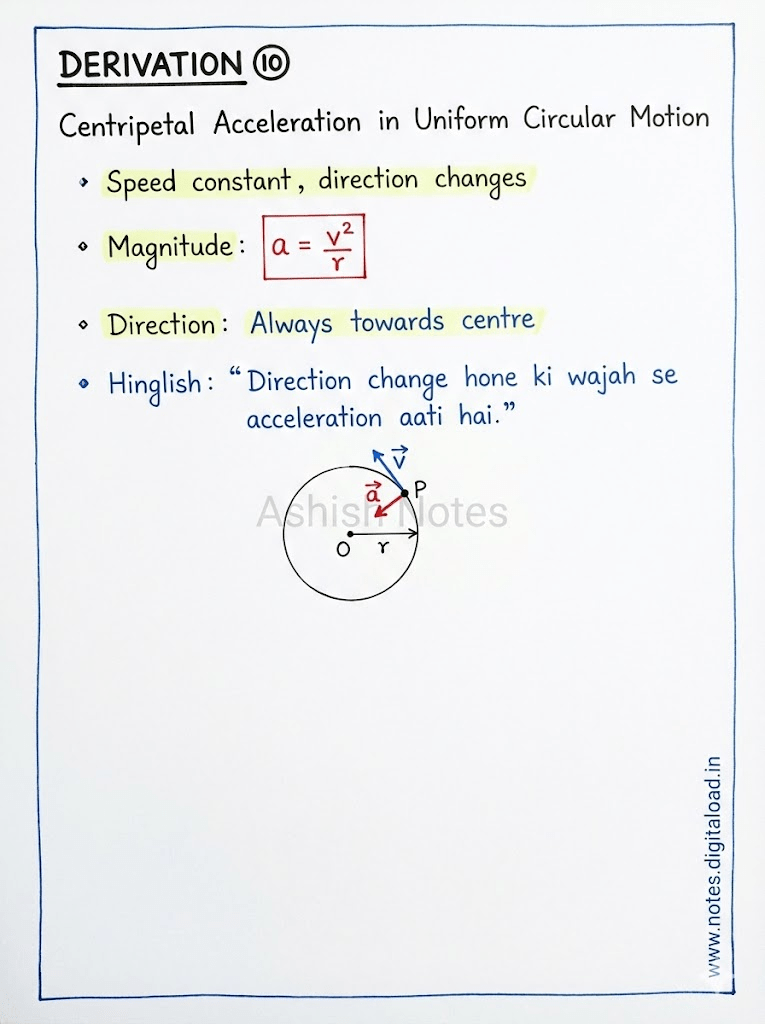 DERIVATION ⑩
Centripetal Acceleration in Uniform Circular Motion
Speed constant, direction changes
Magnitude: a = v²/r
Direction: Always towards centre
Hinglish: “Direction change hone ki wajah se
acceleration aati hai.”
v
a
P
Ashish Notes
O r
www.notes.digitaload.in